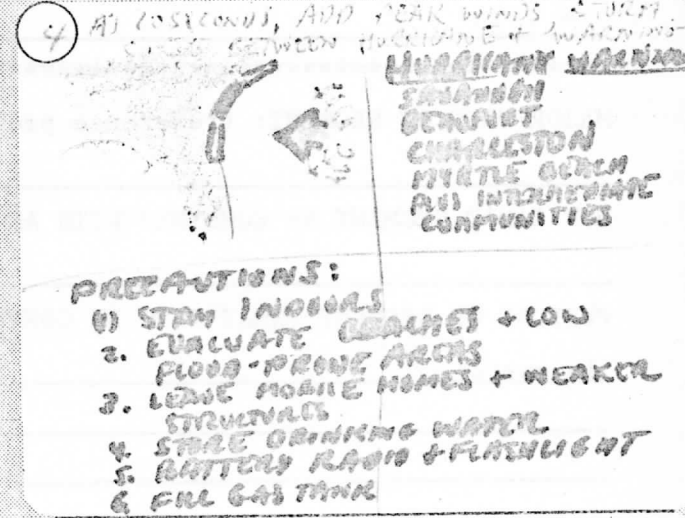 4 AT 10 SECONDS, ADD PEAK WINDS, STORM
BETWEEN HURRICANE + WARNING
HURRICANE WARNING
SAVANNAH
BEAUFORT
CHARLESTON
MYRTLE BEACH
PLUS INTERMEDIATE
COMMUNITIES
PRECAUTIONS:
(1) STAY INDOORS
2. EVACUATE BEACHES + LOW
FLOOD-PRONE AREAS
3. LEAVE MOBILE HOMES + WEAKER
STRUCTURES
4. STORE DRINKING WATER
5. BATTERY RADIO + FLASHLIGHT
6. FILL GAS TANK